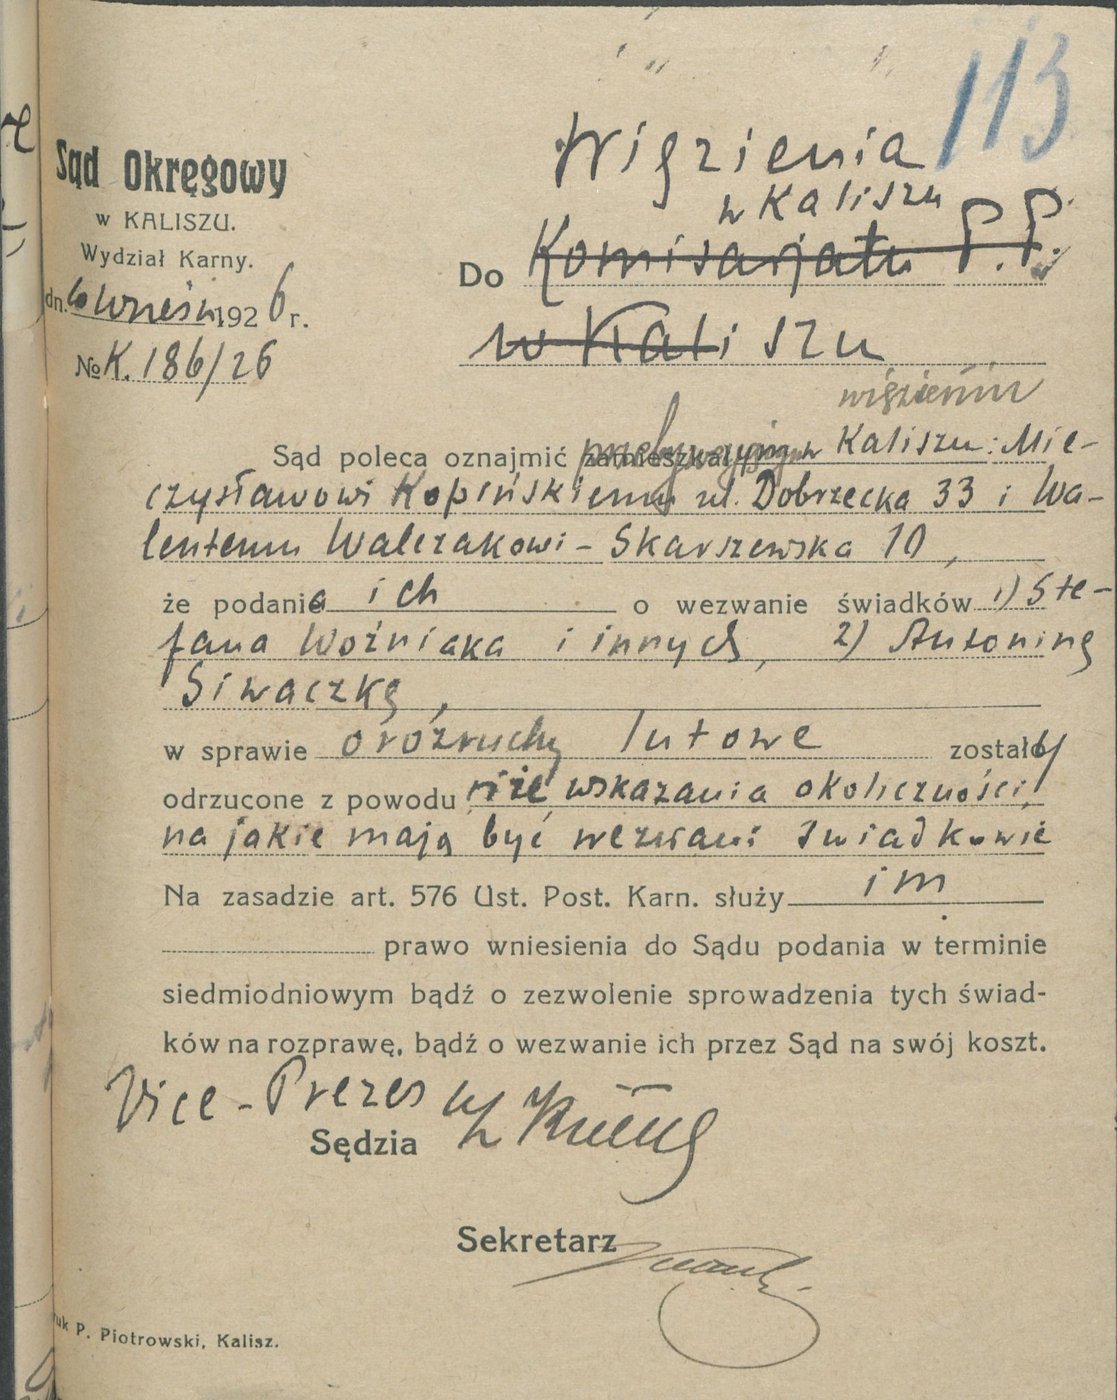 113
Sąd Okręgowy
w KALISZU.
Wydział Karny.
dn. Wrześn. 1926 r.
№ K. 186/26
Więzienia
w Kaliszu
Do Komisarjatu P.P.
w Kaliszu
więzieniu
Sąd poleca oznajmić w Kaliszu: Mie-
czysławowi Kopińskiemu ul. Dobrzecka 33 i Wa-
lentemu Walczakowi - Skarszewska 10,
że podania ich o wezwanie świadków 1) Ste-
fana Woźniaka i innych, 2) Antoninę
Siwaczkę,
w sprawie o rozruchy lutowe zostały
odrzucone z powodu nie wskazania okoliczności,
na jakie mają być wezwani świadkowie
Na zasadzie art. 576 Ust. Post. Karn. służy im
prawo wniesienia do Sądu podania w terminie
siedmiodniowym bądź o zezwolenie sprowadzenia tych świad-
ków na rozprawę, bądź o wezwanie ich przez Sąd na swój koszt.
Vice-Prezes
Sędzia
Sekretarz
P. Piotrowski, Kalisz.